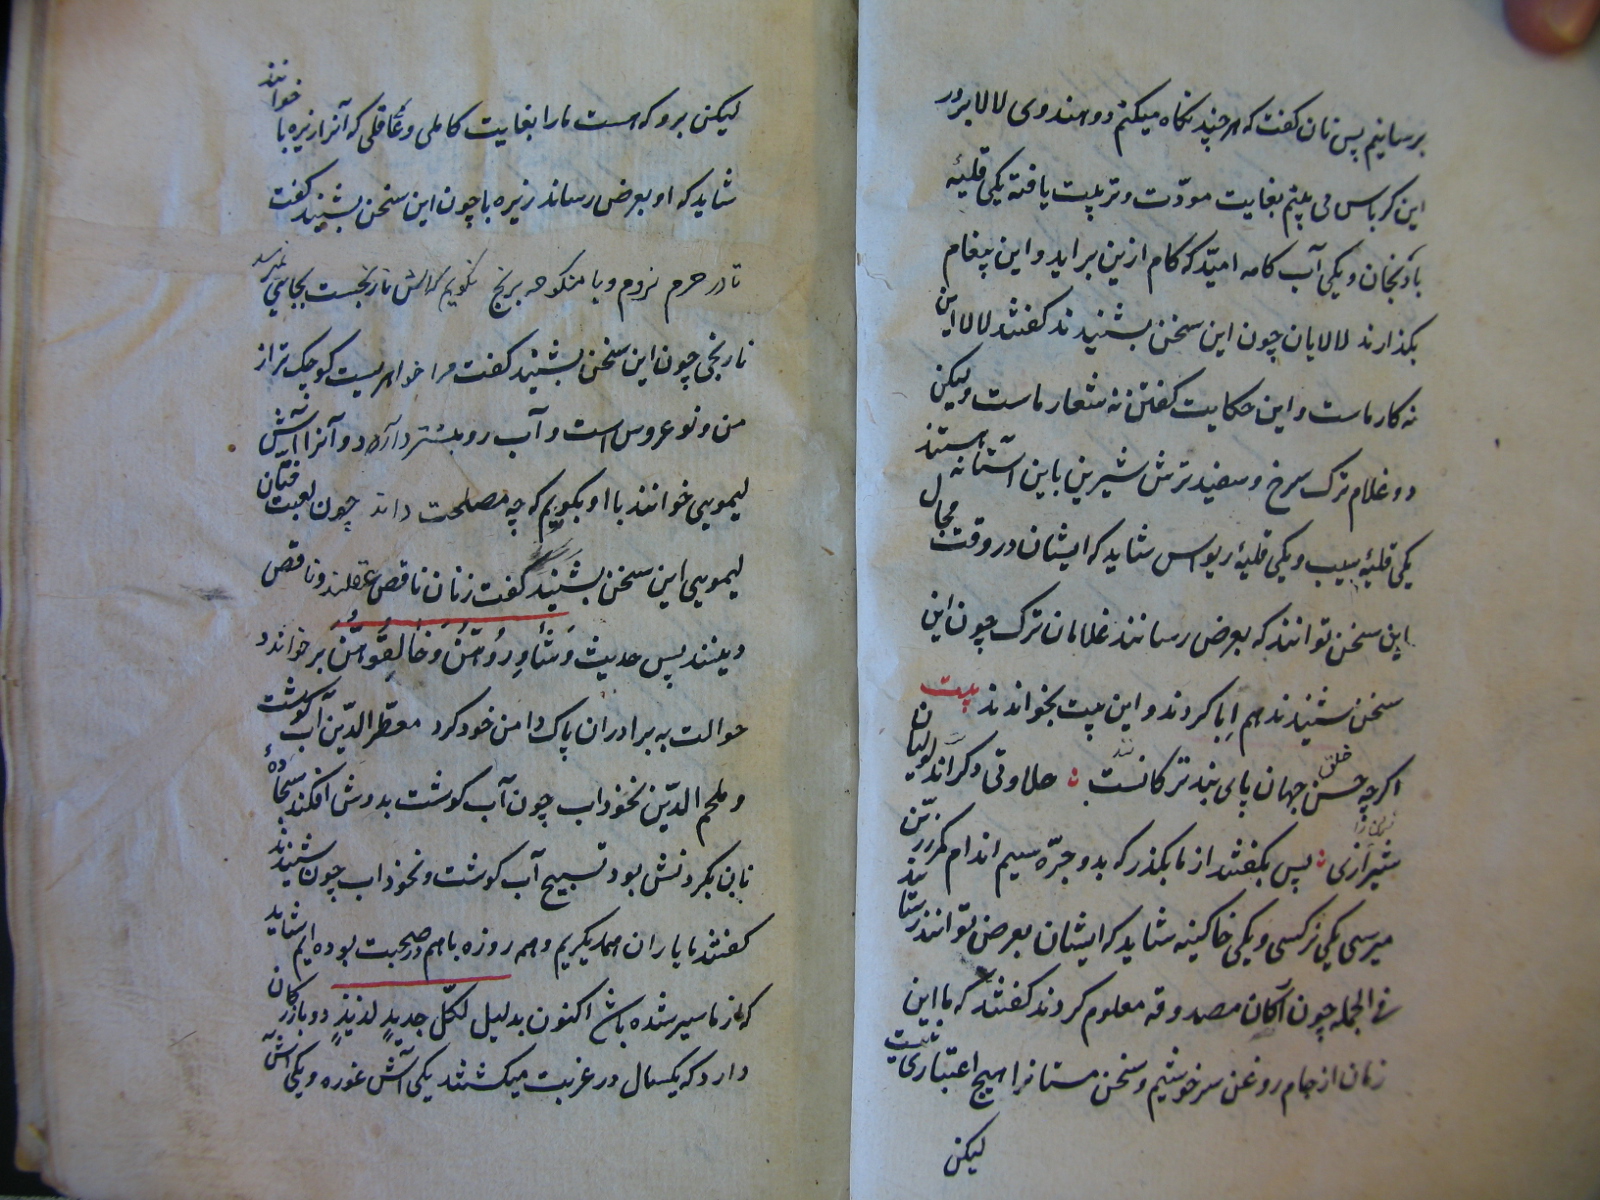 برسانیم پس نان گفت که هر چند نگاه میکنم دو هندوی لالا برادر
این کرباس می بینم بغایت مودّت و تربیت یافته یکی قلیهٔ
بادنجان و یکی آب کامه امیّد که کام ازین براید و این پیغام
بگذارند لالایان چون این سخن بشنیدند گفتند لالا این
نه کار ماست و این حکایت گفتن نه شعار ماست ولیکن
دو غلام ترک سرخ و سفید ترش شیرین باین آستانه هستند
یکی قلیهٔ سیب و یکی قلیهٔ ریواس شاید که ایشان در وقت مجال
این سخن توانند که بعرض رسانند غلامان ترک چون این
سخن شنیدند هم اِبا کردند و این بیت بخواندند بیت
اگرچه حسن خلق جهان پای بند ترکانست حلاوتی دگر اند لولیان
شیرازی پس بگفتند از ما بگذر که بدو جرّه سیم اندام کمر زرّین
میرسی یکی نرکسی و یکی خاکینه شاید که ایشان بعرض توانند رسانند
فی الجمله چون آکان مصدوقه معلوم کردند گفتند که ما این
زمان از جام روغن سرخوشیم و سخن مستانرا هیچ اعتباری نیست
لیکن
لیکن برو که هست مارا بغایت کاملی و عاقلی که آنرا زیره با خوانند
شاید که او بعرض رساند زیره با چون این سخن بشنید گفت
تا در حرم نروم و با منکوحه برنج نگویم که اش نارنجست بجایی نمیرسد
نارنجی چون این سخن بشنید گفت مرا خواهریست کوچک تر از
من و نو عروس است و آب رو بیشتر دارد و آنرا آش
لیمویی خوانند با او بگویم که چه مصلحت داند چون لعبت فتّان
لیمویی این سخن بشنید گفت زنان ناقص عقلند و ناقص
دینند پس حدیث وَ شَاوِرُوْهُنَّ وَ خَالِفُوْهُنَّ برخواند و
حوالت به برادران پاک دامن خود کرد معطّر الدّین آب گوشت
و ملحم الدّین نخوداب چون آب گوشت بدوش افکند سجّادهٔ
نان بگردنش بود تسبیح آب گوشت و نخوداب چون شنیدند
گفتند ما یاران همدیگریم و همه روزه باهم در صحبت بوده ایم شاید
که از ما سیر شده باشد اکنون بدلیل لکلّ جدیدٍ لذیذٍ دو بازرکان
دارد که یکسال در غربت میکشتند یکی آش غوره و یکی آش